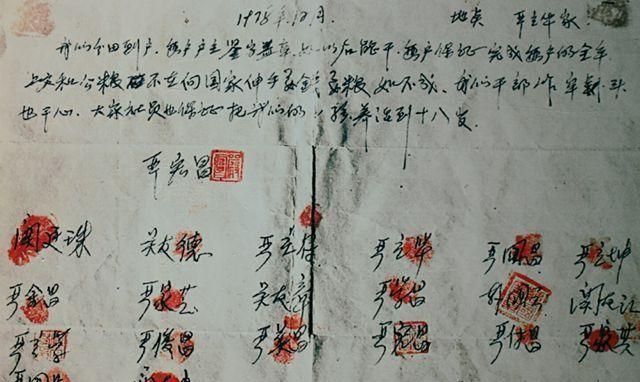 1978年12月 地点 严立华家
我们分田到户，每户户主签字盖章，如以后能干，每户保证完成每户的全年
上交和公粮，不在向国家伸手要钱要粮，如不成，我们干部作牢刹头
也干心，大家社员也保证把我们的小孩养活到十八岁。
严宏昌
关廷珠 关友德 严立符 严立华 严国昌 严立坤
严金昌 严家芝 关友章 严学昌 韩国云 关友江
严立学 严俊昌 严美昌 严宏昌 严付昌 严家其